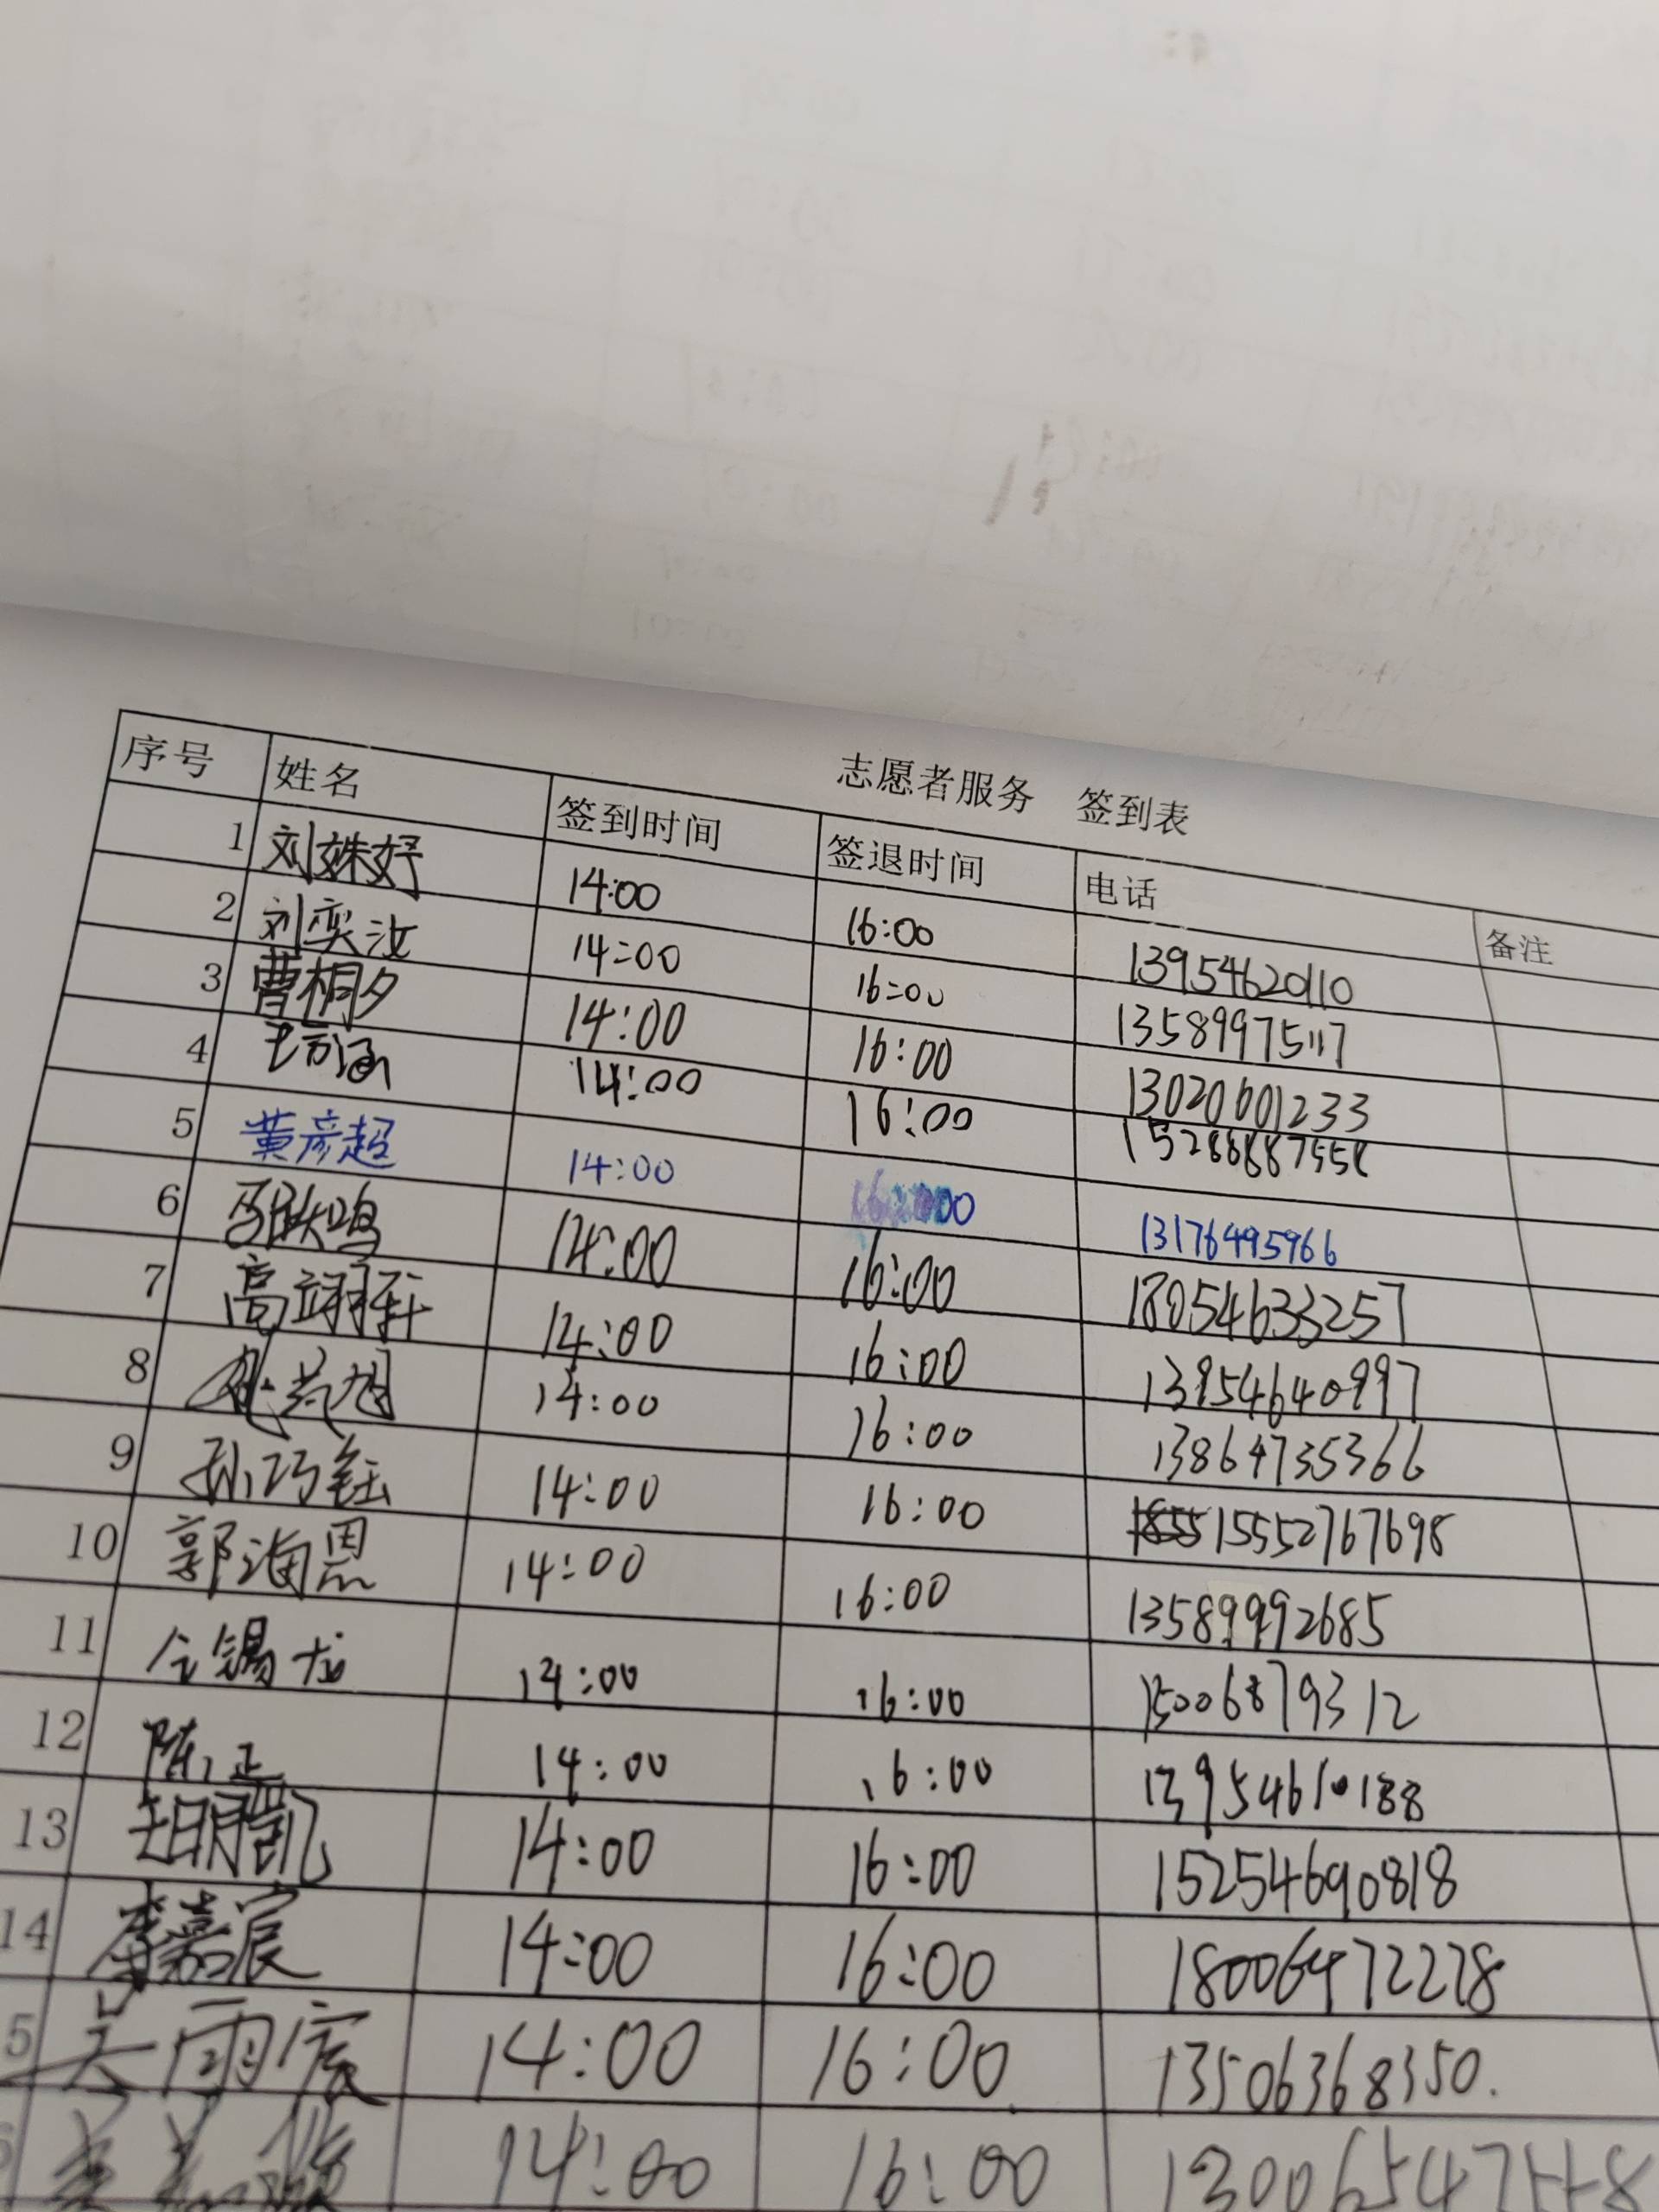 志愿者服务 签到表
序号 姓名 签到时间 签退时间 电话 备注
1 刘姝妤 14:00 16:00 13954620110
2 刘奕汝 14:00 16:00 13589975117
3 曹桐夕 14:00 16:00 13020601233
4 14:00 16:00
5 黄彦超 14:00 16:00 13176495966
6 14:00 16:00 18054633257
7 高翊轩 14:00 16:00 13954640997
8 14:00 16:00 13864735366
9 孙巧钰 14:00 16:00 15552767698
10 郭海恩 14:00 16:00 13589992685
11 仝锡龙 14:00 16:00 15006879312
12 陈正 14:00 16:00 13954610188
13 14:00 16:00 15254690818
14 李嘉宸 14:00 16:00 18006472278
5 吴雨宸 14:00 16:00 13506368350.
14:00 16:00